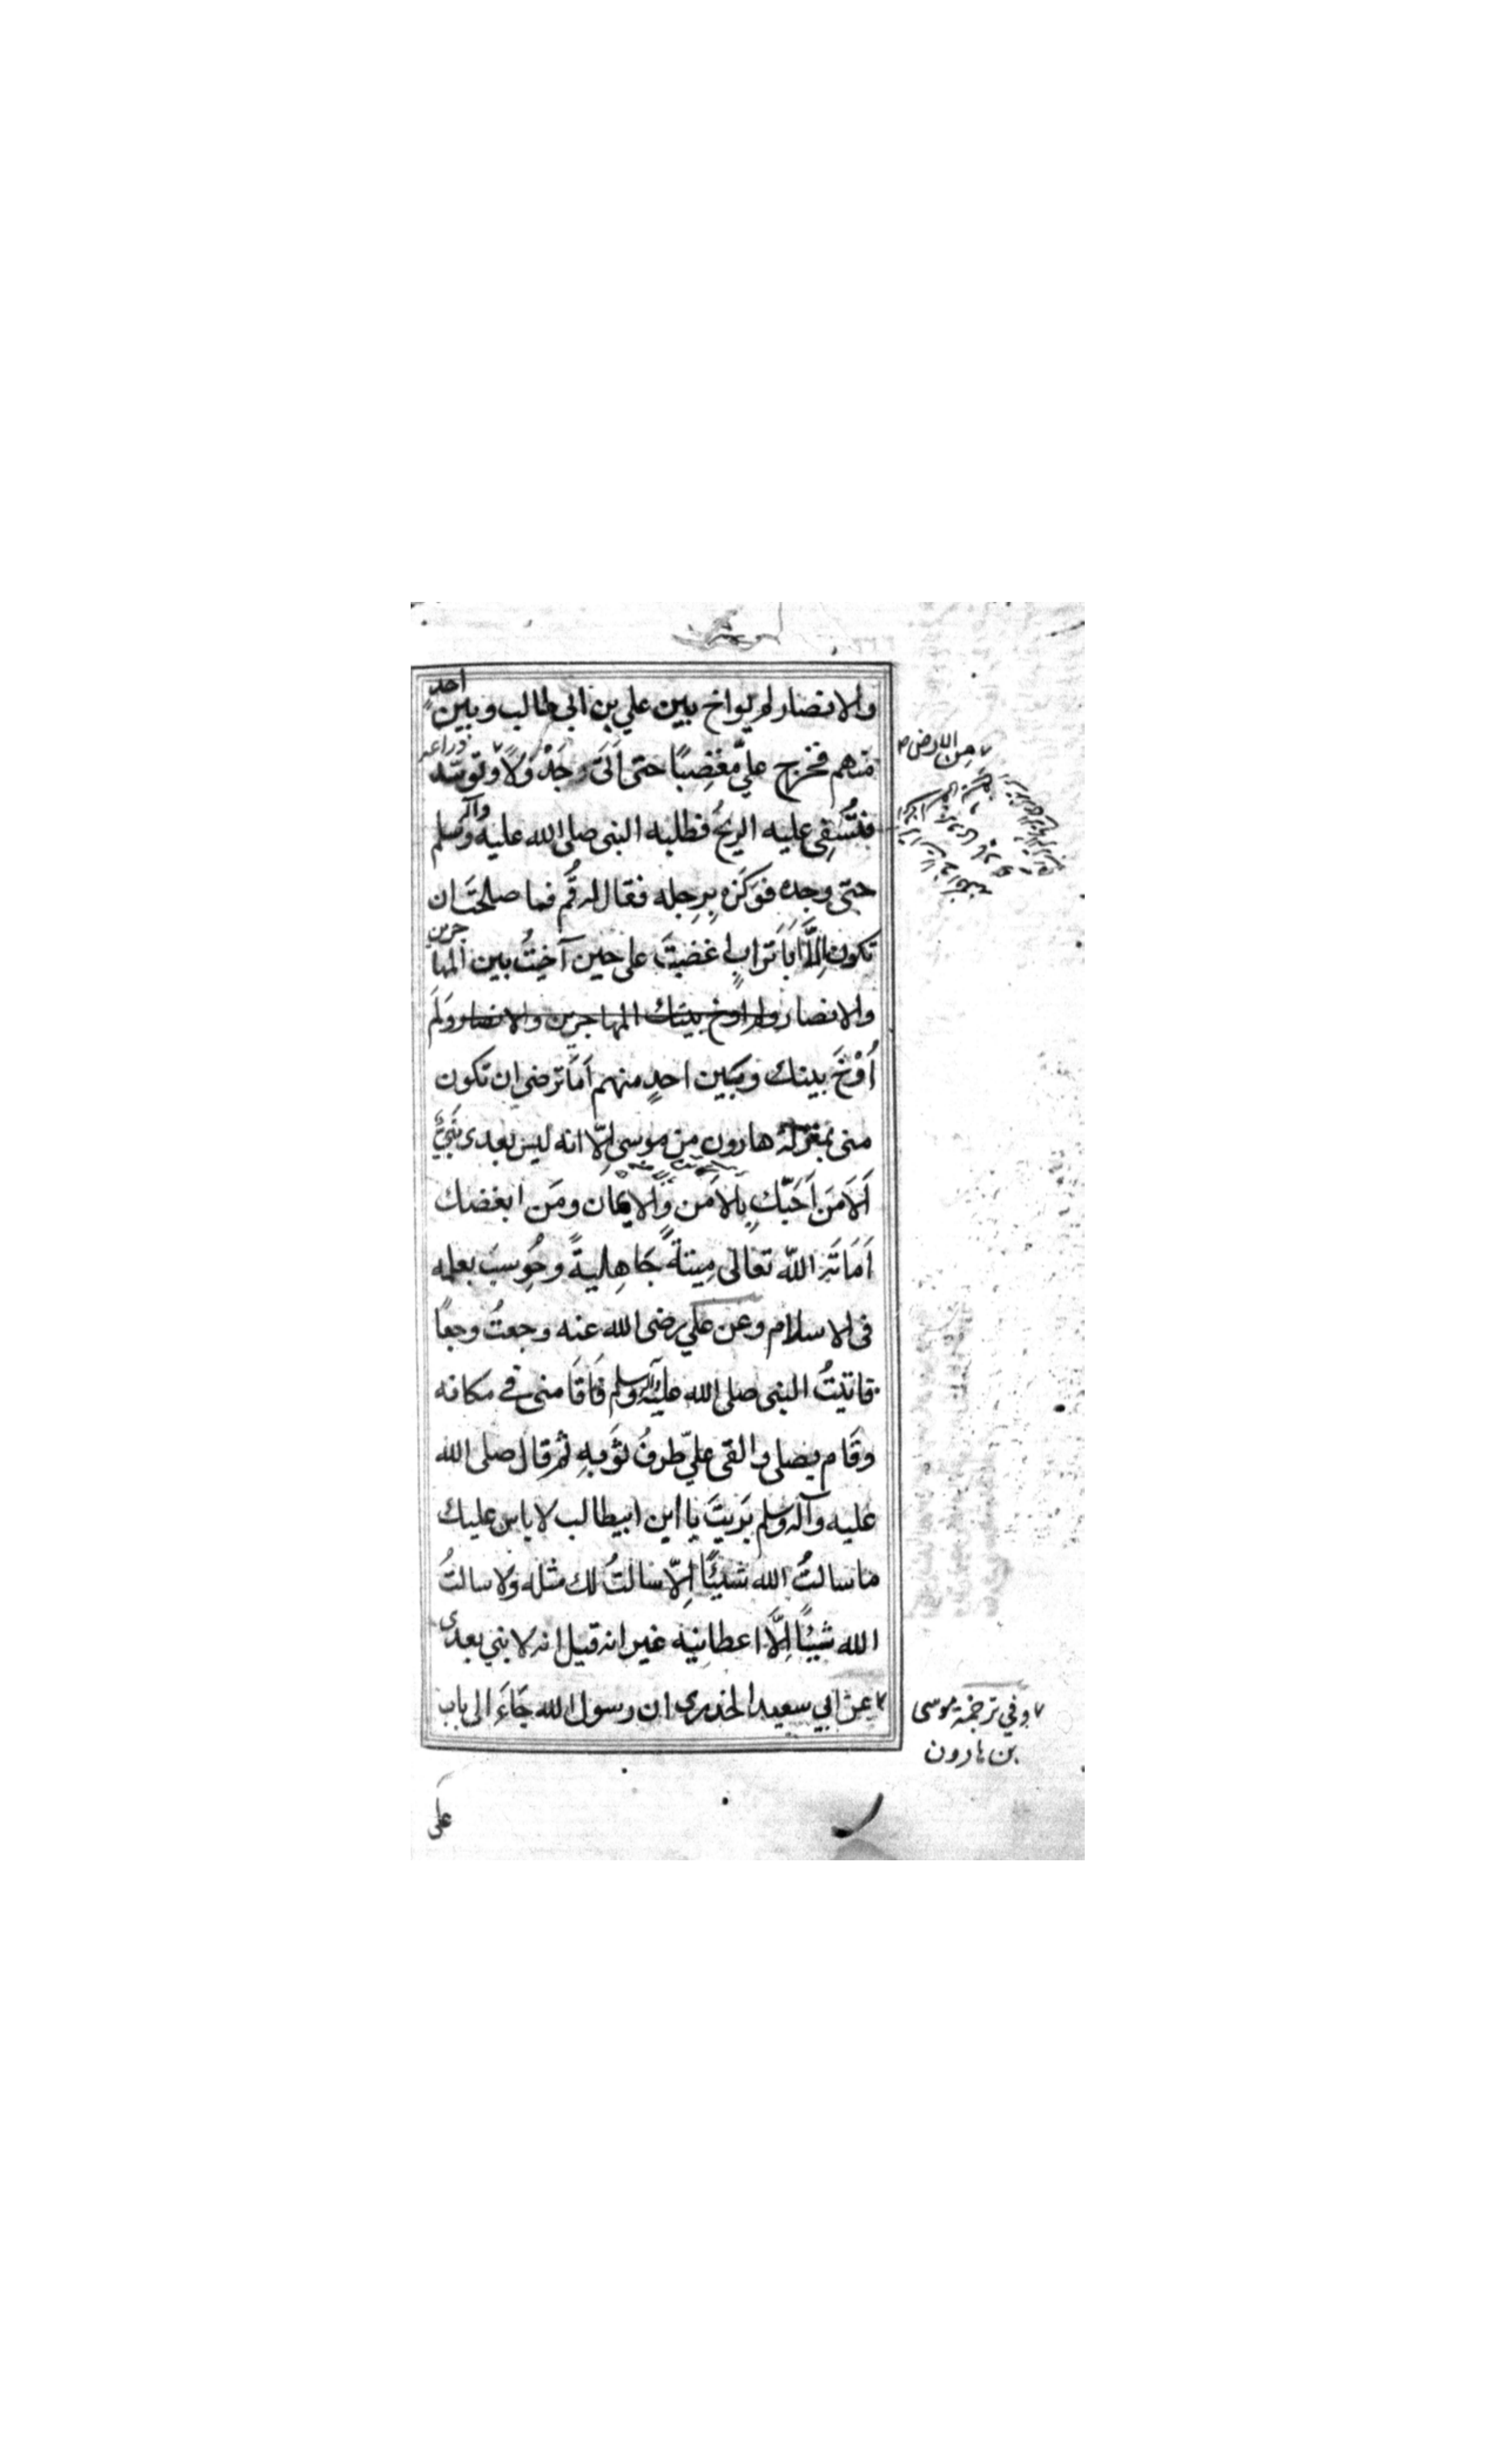 والانصار لم يواخ بين علي بن ابى طالب وبين احد
منهم فخرج عليٌّ مغضِبًا حتى اَتَى جَدْوَلاً وتوسّد ذراعه
فتُسْقِى عليه الريحُ فطلبه النبى صلى الله عليه وآله وسلم
حتى وجده فوَكَزَه بِرِجِله فقال له قُم فما صلحتَ ان
تكون اِلّا اَبَا تَرابٍ اغضبتَ على حين آخيتُ بين المها جرين
والانصار ولم اوخ بينك المهاجرين والانصار ولَم
اُوَْخِ بينك وبَين احدٍ منهم اَمَا ترضى ان تكون
منى بمنزلة هارون من موسى اِلّا انه ليس بعدى نَبيٌّ
اَلاَ مَن اَحَبَّك بِالاَمن وَالايمان ومَن ابغضك
اَمَاتَه اللّه تعالى مِيتةً جَاهِليةً وحُوسِبَ بعمله
فى الاسلام وعن علي رضى الله عنه وجعتُ وجعًا
فاتيتُ النبى صلى الله عليه وآله وسلم فَاَقَامنى في مكانه
وقَام يصلى والقى عليّ طرفَ ثوَبِهِ ثم قال صلى الله
عليه وآله وسلم بَرِيتَ يا ابن ابيطالب لا باس عليك
ما سالتُ الله شيئًا اِلّا سَالتُ لك مثله ولا سالتُ
الله شيئًا اِلَّا اعطانِيه غير انه قيل انه لا نبي بعدى
عن ابي سعيد الخدرى ان رسول الله جَاءَ الى باب
من الارض
وفي ترجمة موسى
بن هارون
على